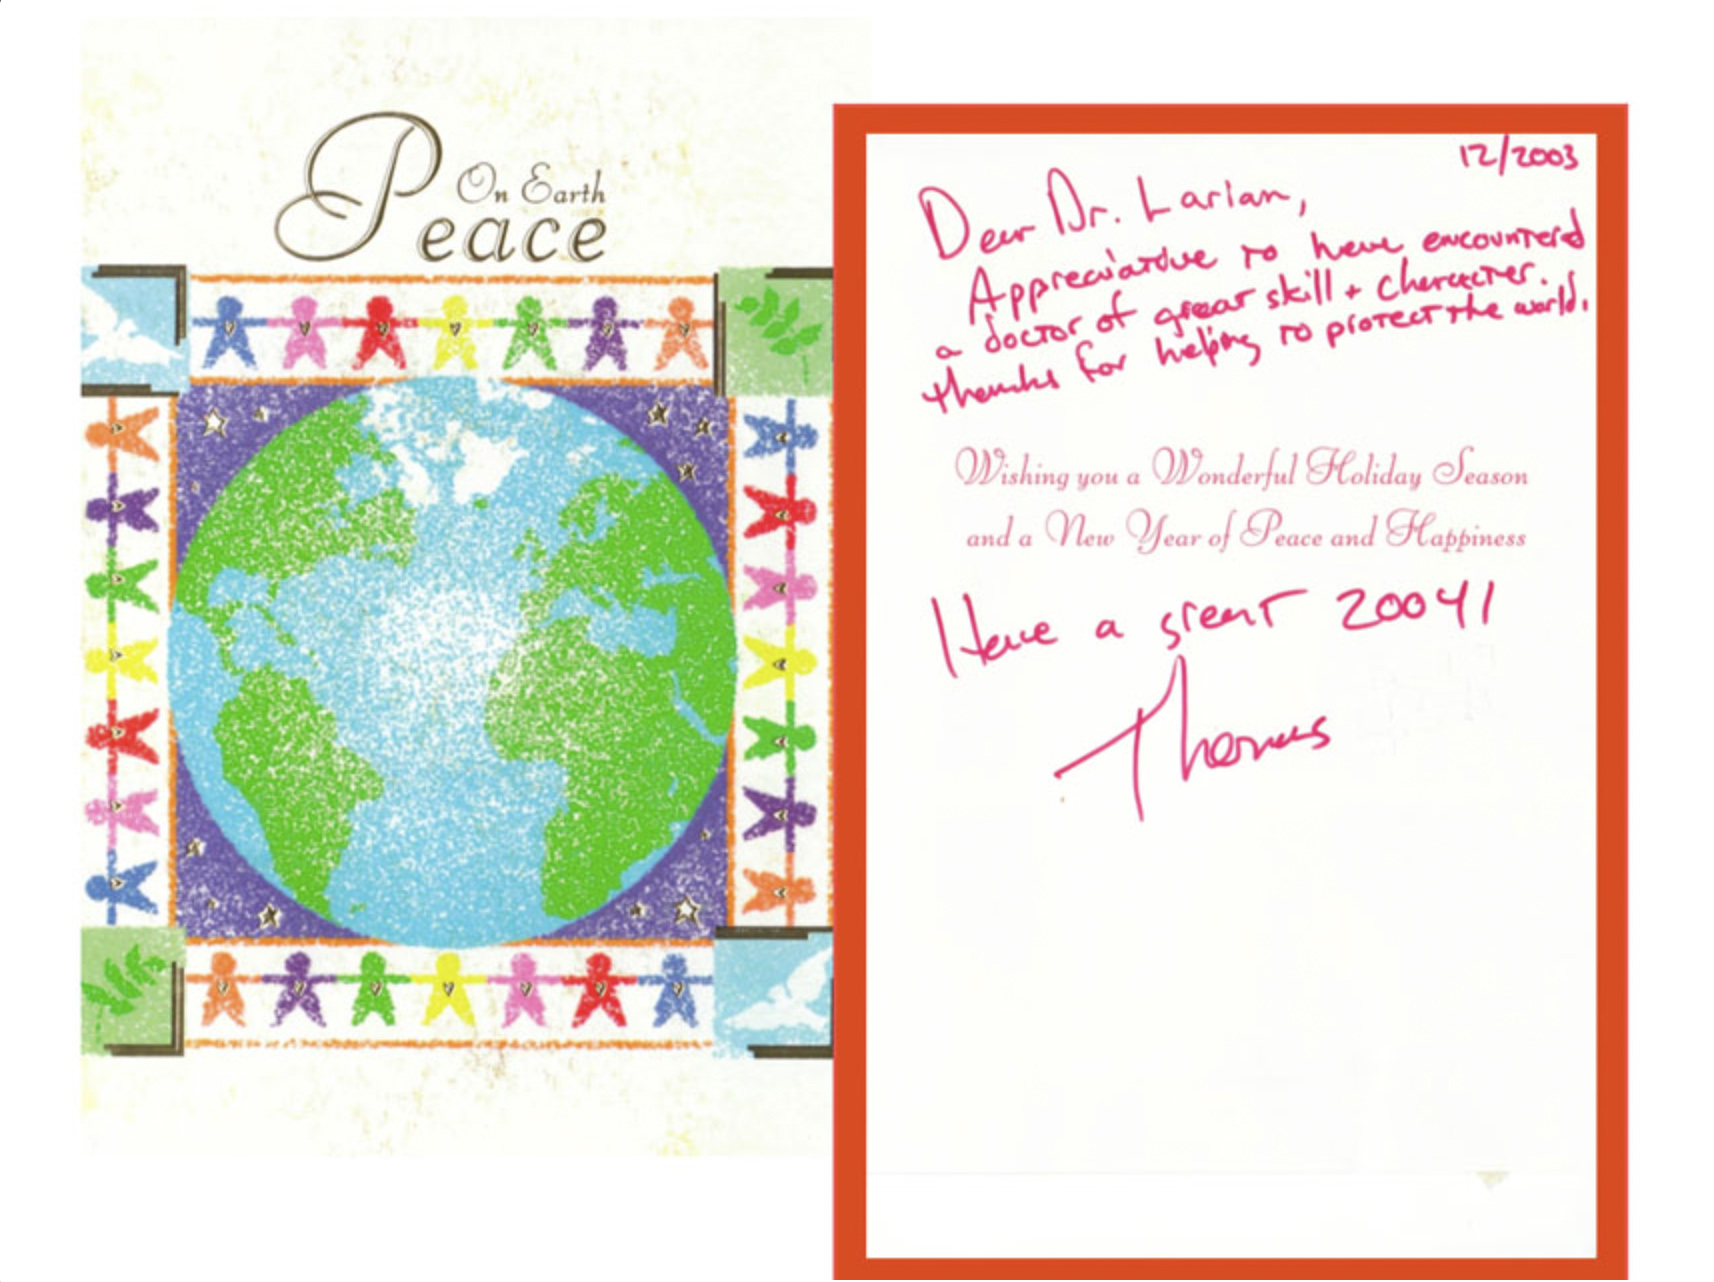 On Earth
Peace
12/2003
Dear Dr. Larian,
Appreciative to have encountered
a doctor of great skill + character.
thanks for helping to protect the world.
Wishing you a Wonderful Holiday Season
and a New Year of Peace and Happiness
Have a great 2004!
Thomas